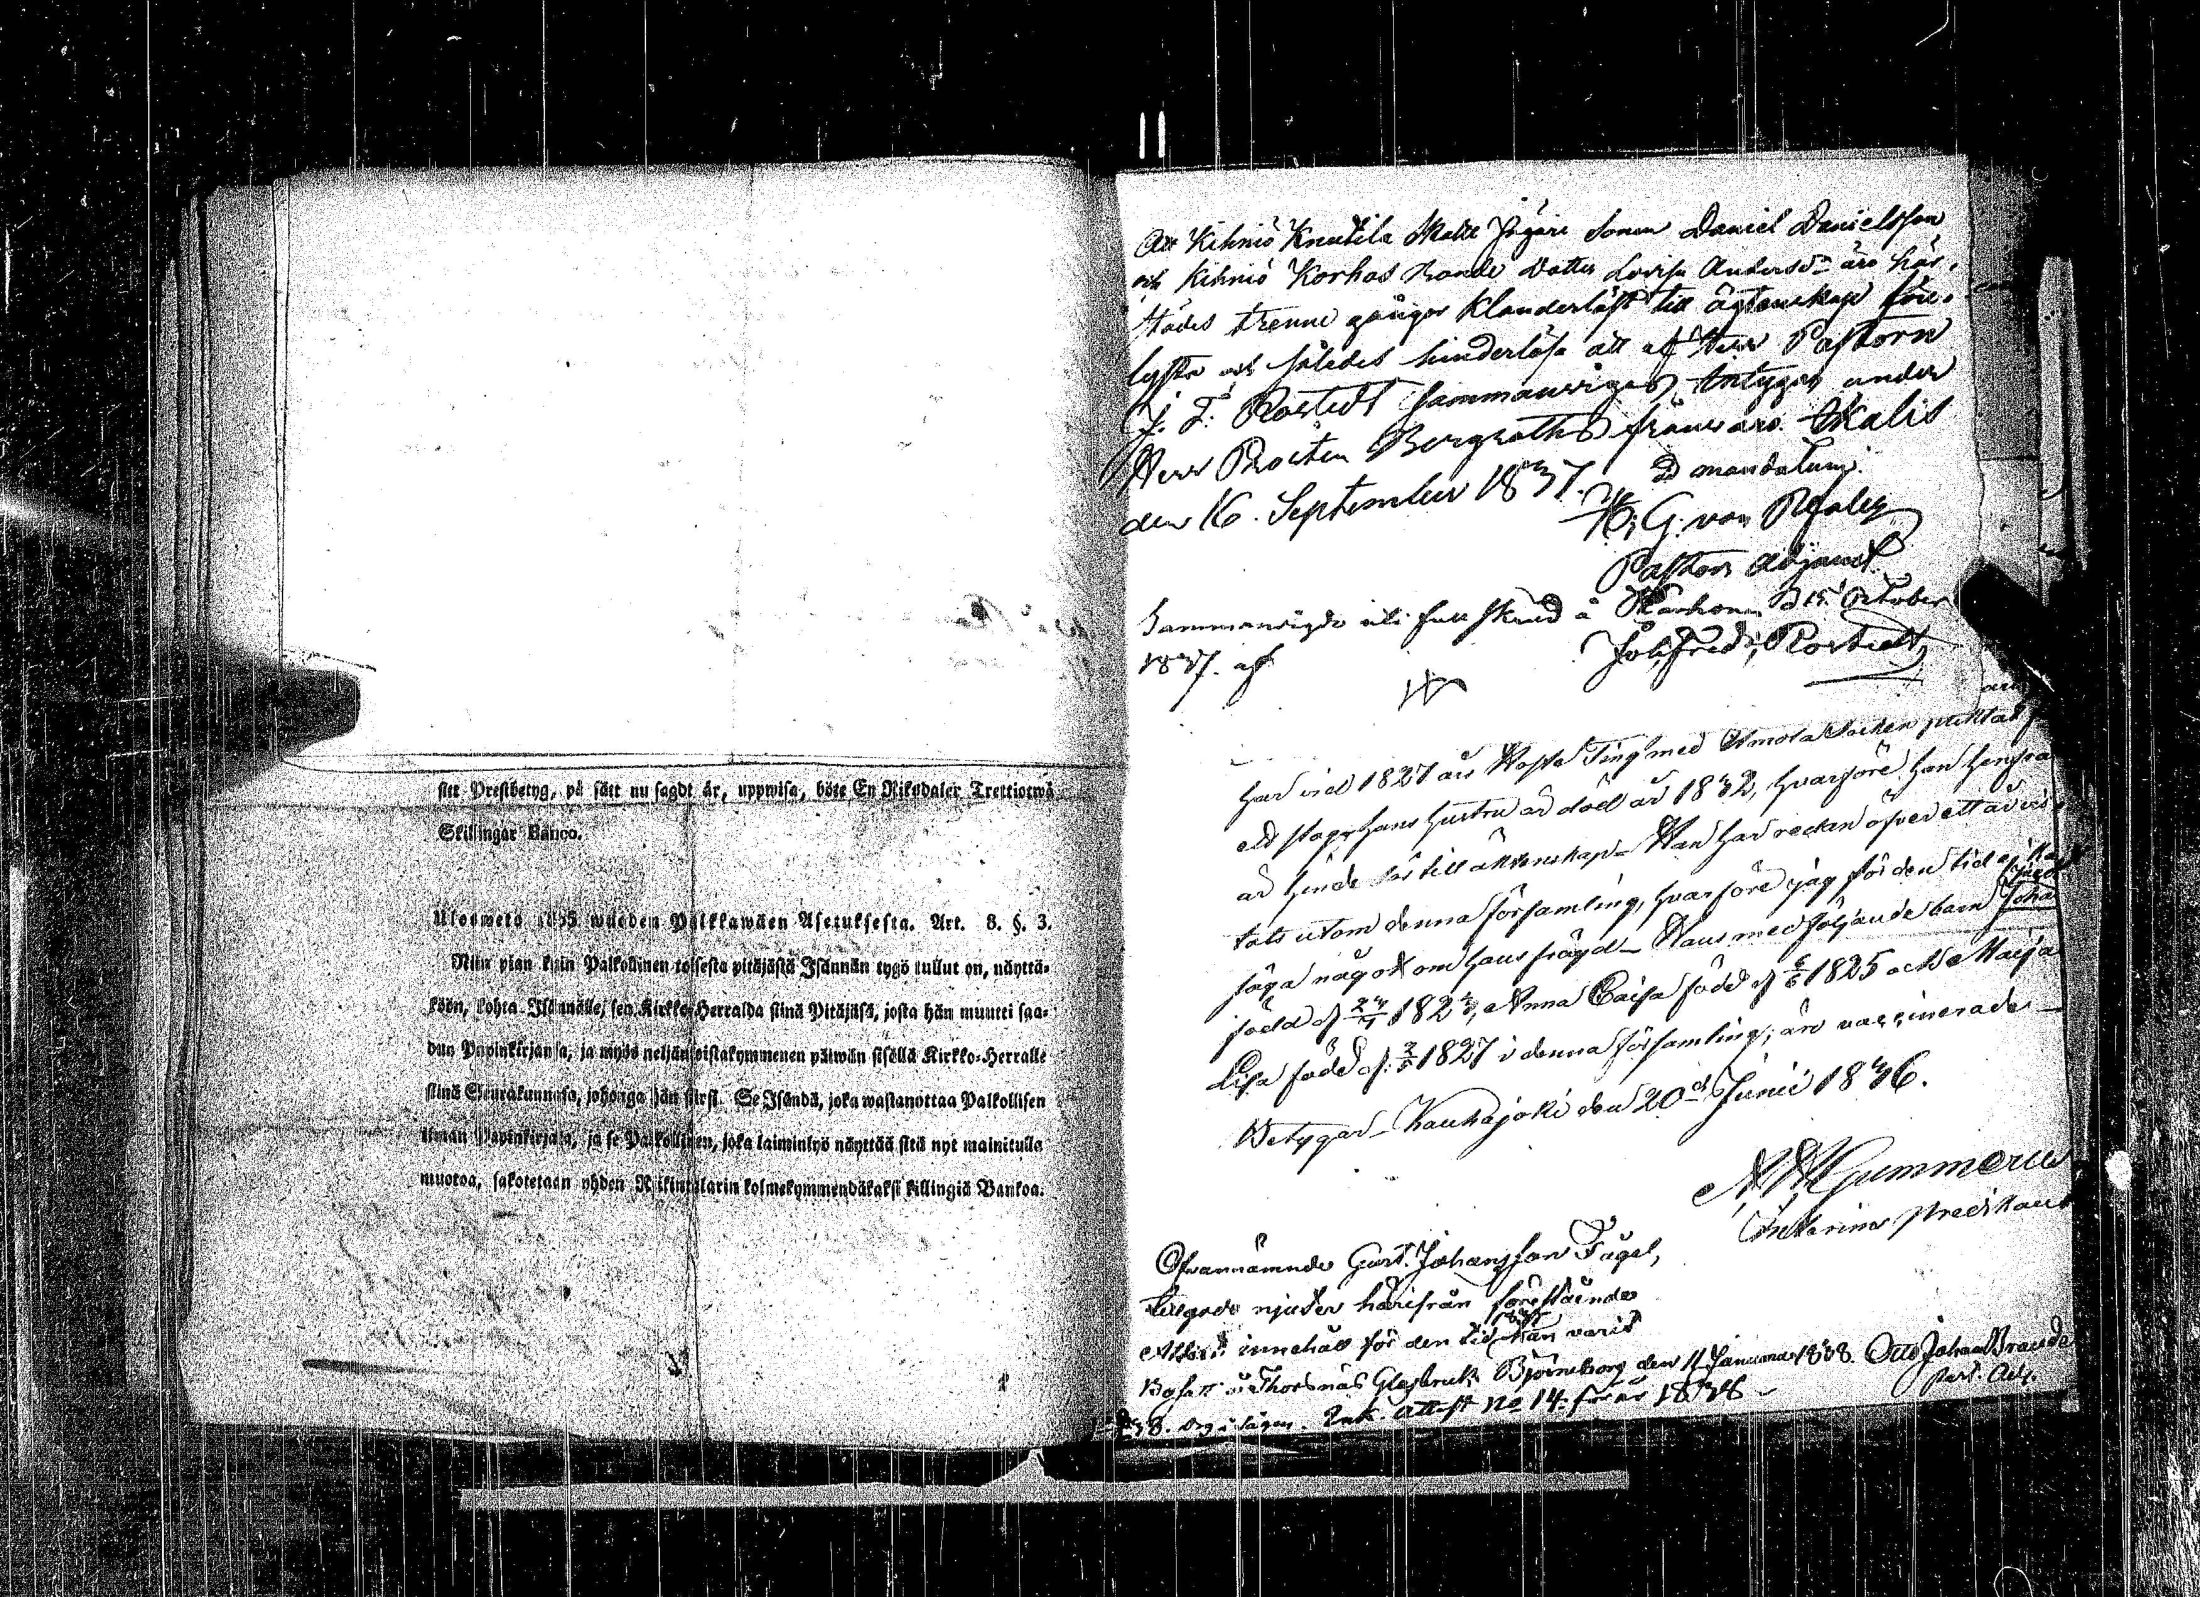 sitt Prestbetyg, på sätt nu sagdt är, uppwisa, böte En Riksdaler Trettiotwå
Skillingar Banco.
Ulosweto 1805 wuoden Palkkawäen Asetuksesta. Art. 8. §. 3.
Niin pian kuin Palkollinen toisesta pitäjästä Isännän tygö tullut on, näyttä-
köön, kohta Isännälle, sen Kirkko-Herralda siinä Pitäjäsä, josta hän muutti saa-
dun Papinkirjansa, ja myös neljäntoistakymmenen päiwän sisällä Kirkko-Herralle
siinä Seurakunnasa, johonga hän siirsi. Se Isändä, joka wastanottaa Palkollisen
ilman Papinkirjata, ja se Palkollinen, joka laiminlyö näyttää sitä nyt mainitulla
muotoa, sakotetaan yhden Riikintalarin kolmekymmendäkaksi killingiä Bankoa.
Att Kihniö Knutila Skatte Jägare Sonen Daniel Danielsson
och Kihniö Korhos bonde dotter Lovisa Andersdr äro här-
städes trenne gångor klanderlöst till ägtenskap före-
lyste och således hinderlösa att af Herr Pastorn
J. F. Rostedt sammanvigas, betygar under
Herr Prosten Bergroths frånvaro. Ikalis
den 16. September 1837. Ad mandatum.
G. von Pfaler
Pastors Adjunct
Sammanvigde uti full skrud å Karhon D 15 October
1837. af Joh. Fred. Rostedt
har vid 1827 års Hösta Ting med Ilmola Socken
hans hustru är död år 1832, hvarföre han
är hinderlös till äktenskap - Han har redan öfver ett år vis-
tats utom denna församling, hvarföre jag för den tid ej kan
säga något om hans frägd - Hans medföljande barn Joha
född d 1824, Anna Caisa född d 1825 och Maija
Lisa född d. 1827 i denna församling, äro vaccinerade -
Betygar - Kauhajoki den 20de Junii 1836.
Gummerus
Interims predikant
Ofvannämnde Gust. Johansson Fågel,
tillgodo njuter härifrån förestående
Attest innehåll för den tid han varit
Bosatt å Thorsnäs Glasbruk. Björneborg den 11 Januari 1838. Otto Johan Brander
Past. Adj.
Ink. Attest No 14 för år 1838